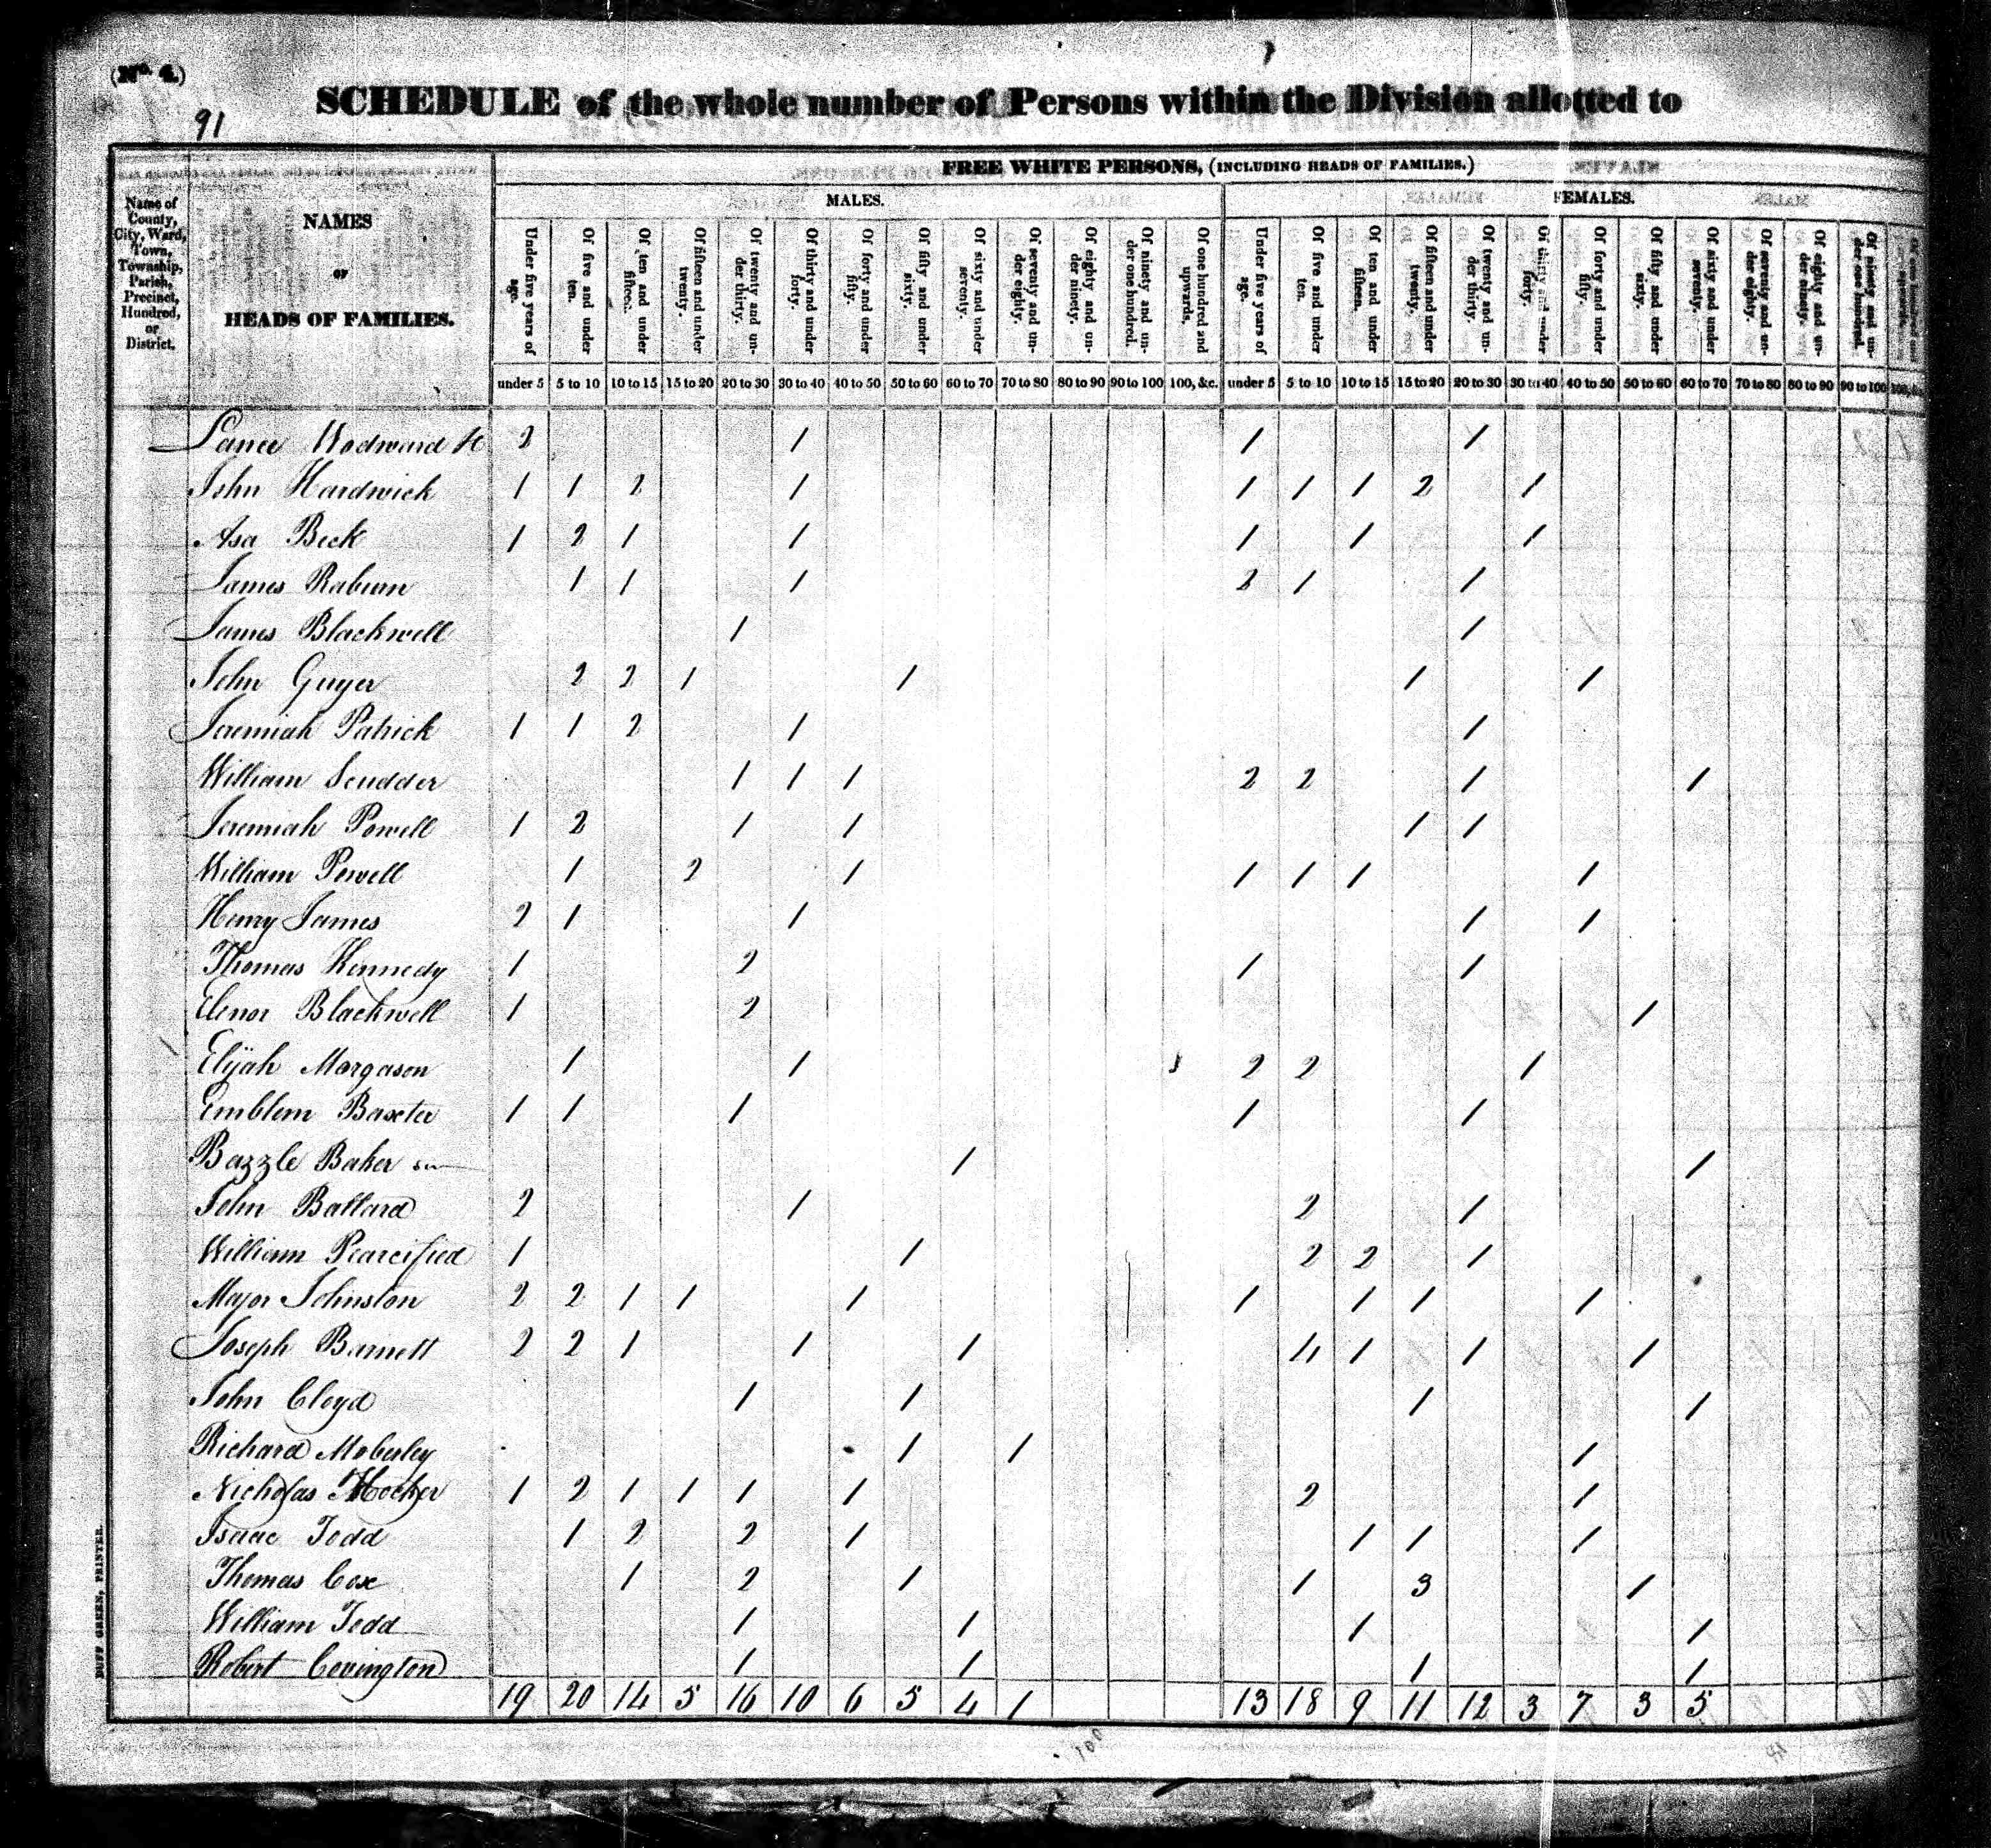 (No. 4.)
91
SCHEDULE of the whole number of Persons within the Division allotted to
FREE WHITE PERSONS, (INCLUDING HEADS OF FAMILIES.)
MALES. FEMALES.
Name of County, City, Ward, Town, Township, Parish, Precinct, Hundred, or District.
NAMES
OF
HEADS OF FAMILIES.
Under five years of age. Of five and under ten. Of ten and under fifteen. Of fifteen and under twenty. Of twenty and under thirty. Of thirty and under forty. Of forty and under fifty. Of fifty and under sixty. Of sixty and under seventy. Of seventy and under eighty. Of eighty and under ninety. Of ninety and under one hundred. Of one hundred and upwards. Under five years of age. Of five and under ten. Of ten and under fifteen. Of fifteen and under twenty. Of twenty and under thirty. Of thirty and under forty. Of forty and under fifty. Of fifty and under sixty. Of sixty and under seventy. Of seventy and under eighty. Of eighty and under ninety. Of ninety and under one hundred.
under 5 5 to 10 10 to 15 15 to 20 20 to 30 30 to 40 40 to 50 50 to 60 60 to 70 70 to 80 80 to 90 90 to 100 100, &c. under 5 5 to 10 10 to 15 15 to 20 20 to 30 30 to 40 40 to 50 50 to 60 60 to 70 70 to 80 80 to 90 90 to 100 100, &c.
Lance Wodward 2 1 1 1
John Hardwick 1 1 2 1 1 1 1 2 1
Asa Beck 1 2 1 1 1 1 1
James Raburn 1 1 1 2 1 1
James Blackwell 1 1
John Guyer 2 2 1 1 1 1
Jeremiah Patrick 1 1 2 1 1
William Scudder 1 1 1 2 2 1 1
Jeremiah Powell 1 2 1 1 1 1
William Powell 1 2 1 1 1 1 1
Henry James 2 1 1 1 1
Thomas Kennedy 1 2 1 1
Elenor Blackwell 1 2 1
Elijah Margason 1 1 2 2 1
Emblem Baxter 1 1 1 1 1
Bazzle Baker 1 1
John Ballard 2 1 2 1
William Pearcified 1 1 2 2 1
Major Johnston 2 2 1 1 1 1 1 1 1
Joseph Barnett 2 2 1 1 1 4 1 1 1
John Cloyd 1 1 1 1
Richard Moberley 1 1 1
Nicholas Hocker 1 2 1 1 1 1 2 1
Isaac Todd 1 2 2 1 1 1 1
Thomas Cox 1 2 1 1 3 1
William Todd 1 1 1 1
Robert Covington 1 1 1 1
19 20 14 5 16 10 6 5 4 1 13 18 9 11 12 3 7 3 5
DUFF GREEN, PRINTER.
100